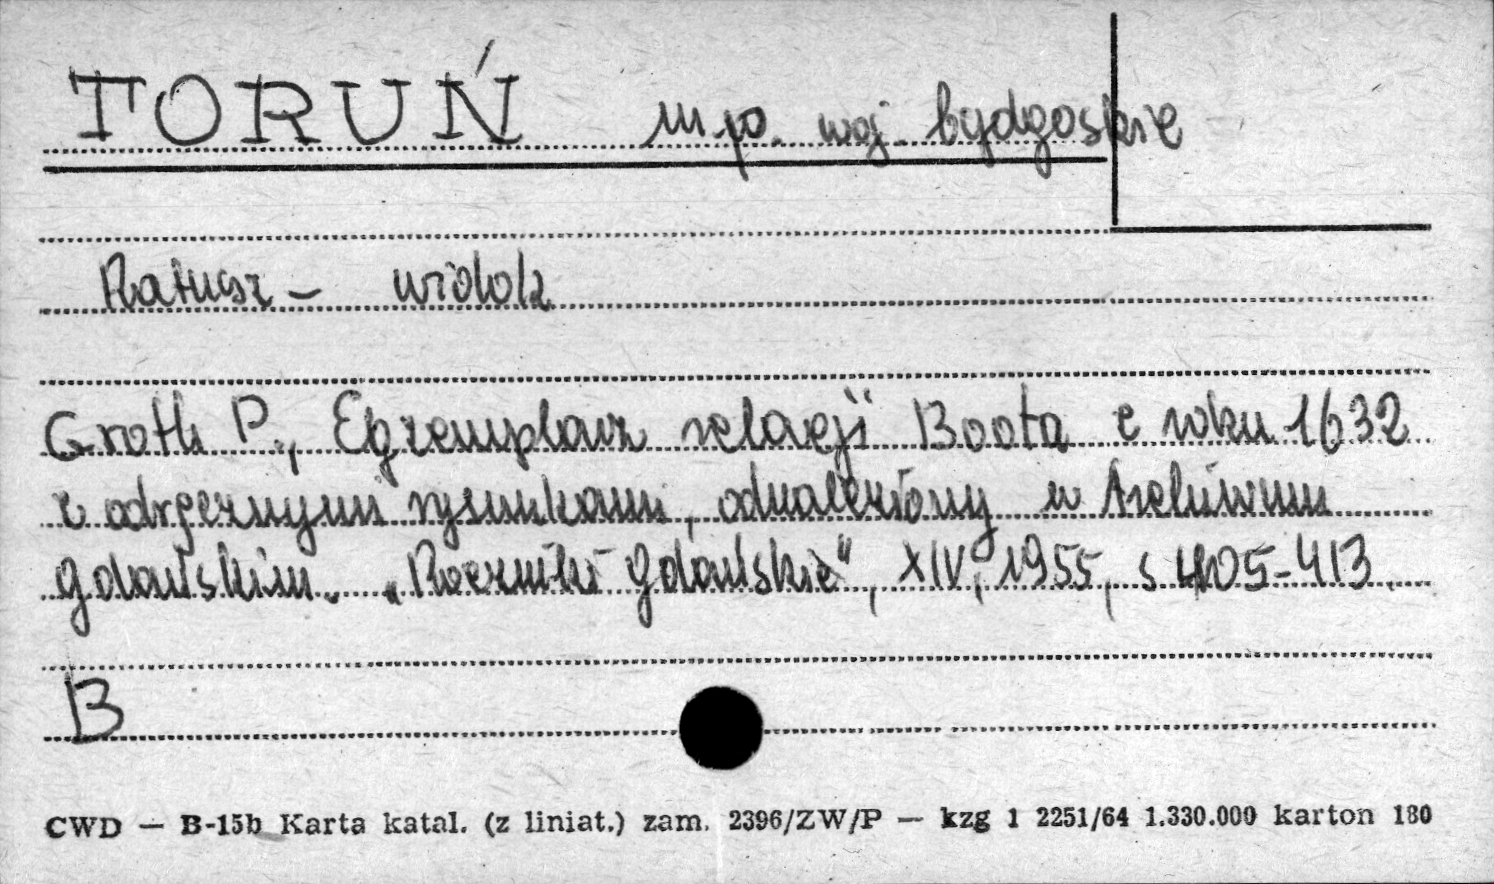 TORUŃ m.p. woj. bydgoskie
Ratusz – widok
Groth P., Egzemplarz relacji Boota z roku 1632
z odręcznymi rysunkami, odnaleziony w Archiwum
Gdańskim. „Roczniki Gdańskie", XIV, 1955, s 405-413.
B
CWD — B-15b Karta katal. (z liniat.) zam. 2396/ZW/P — kzg 1 2251/64 1.330.000 karton 180